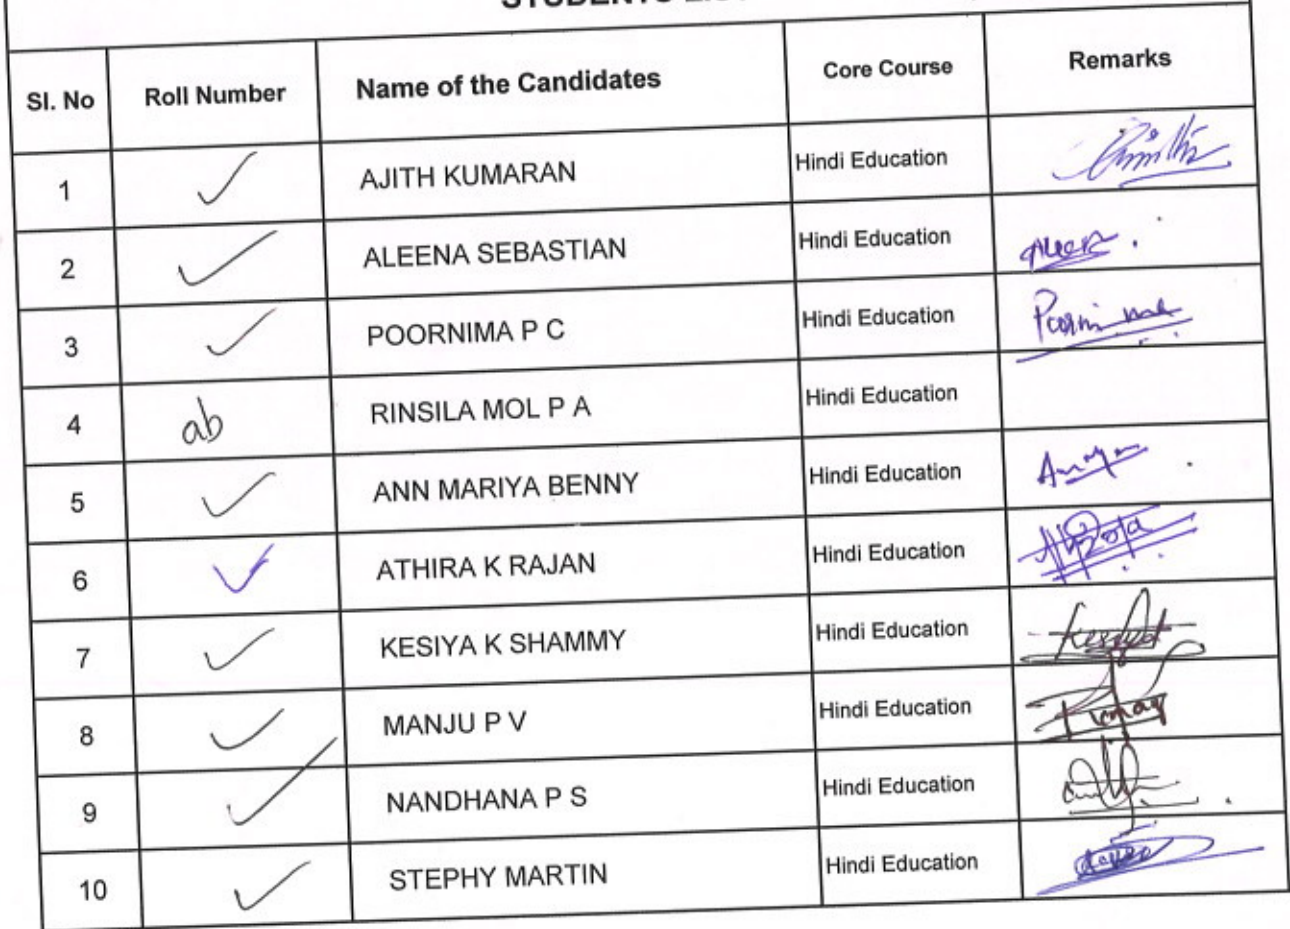 Sl. No Roll Number Name of the Candidates Core Course Remarks
1 ✓ AJITH KUMARAN Hindi Education
2 ✓ ALEENA SEBASTIAN Hindi Education
3 ✓ POORNIMA P C Hindi Education Poornima
4 ab RINSILA MOL P A Hindi Education
5 ✓ ANN MARIYA BENNY Hindi Education
6 ✓ ATHIRA K RAJAN Hindi Education
7 ✓ KESIYA K SHAMMY Hindi Education
8 ✓ MANJU P V Hindi Education
9 ✓ NANDHANA P S Hindi Education
10 ✓ STEPHY MARTIN Hindi Education